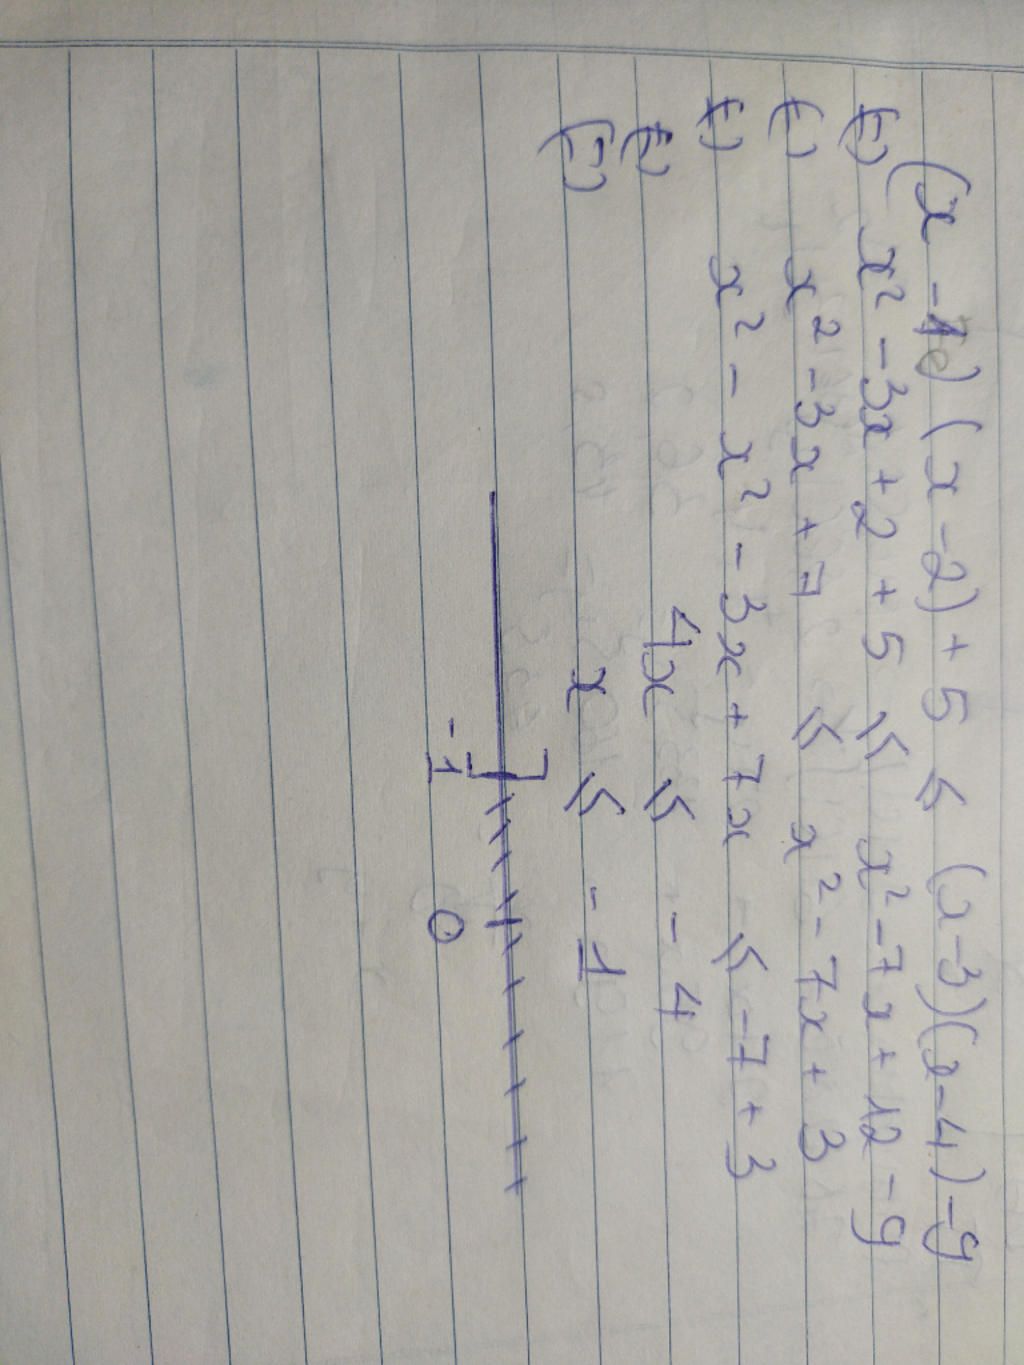 (x - 1)(x - 2) + 5 ≤ (x - 3)(x - 4) - 9
(=) x² - 3x + 2 + 5 ≤ x² - 7x + 12 - 9
(=) x² - 3x + 7 ≤ x² - 7x + 3
(=) x² - x² - 3x + 7x ≤ -7 + 3
(=) 4x ≤ - 4
(=) x ≤ - 1
]
-1 0